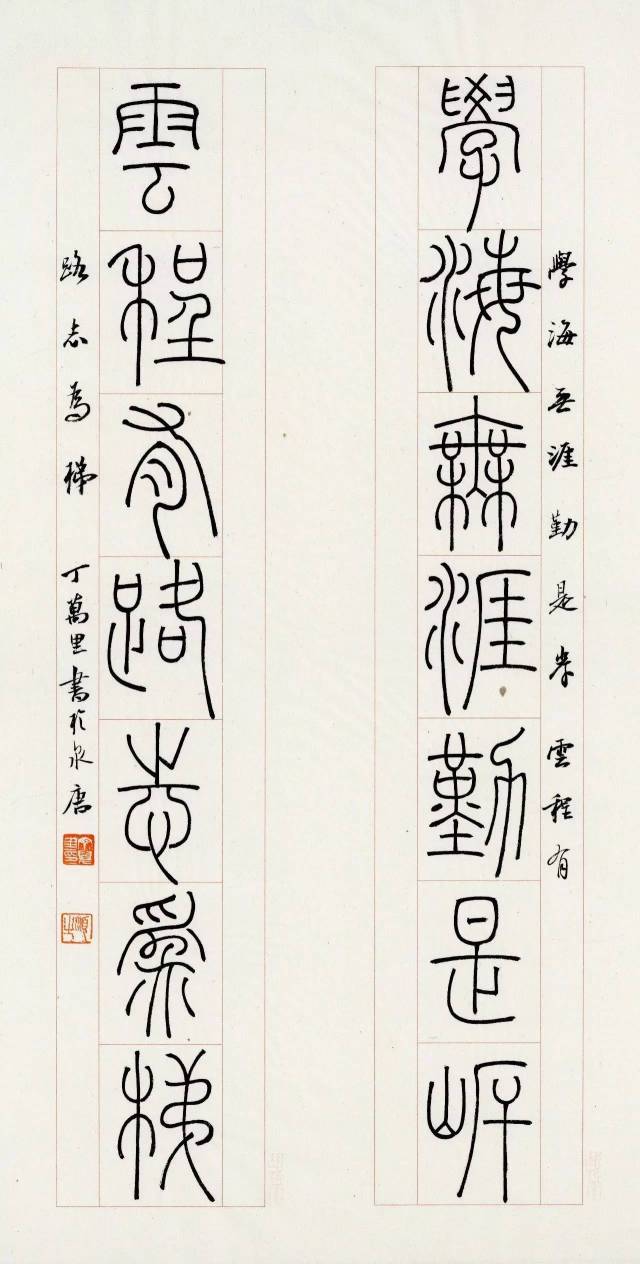 學海无涯勤是岸雲程有
學海無涯勤是岸
雲程有路志為梯
路志為梯丁萬里書於泉唐